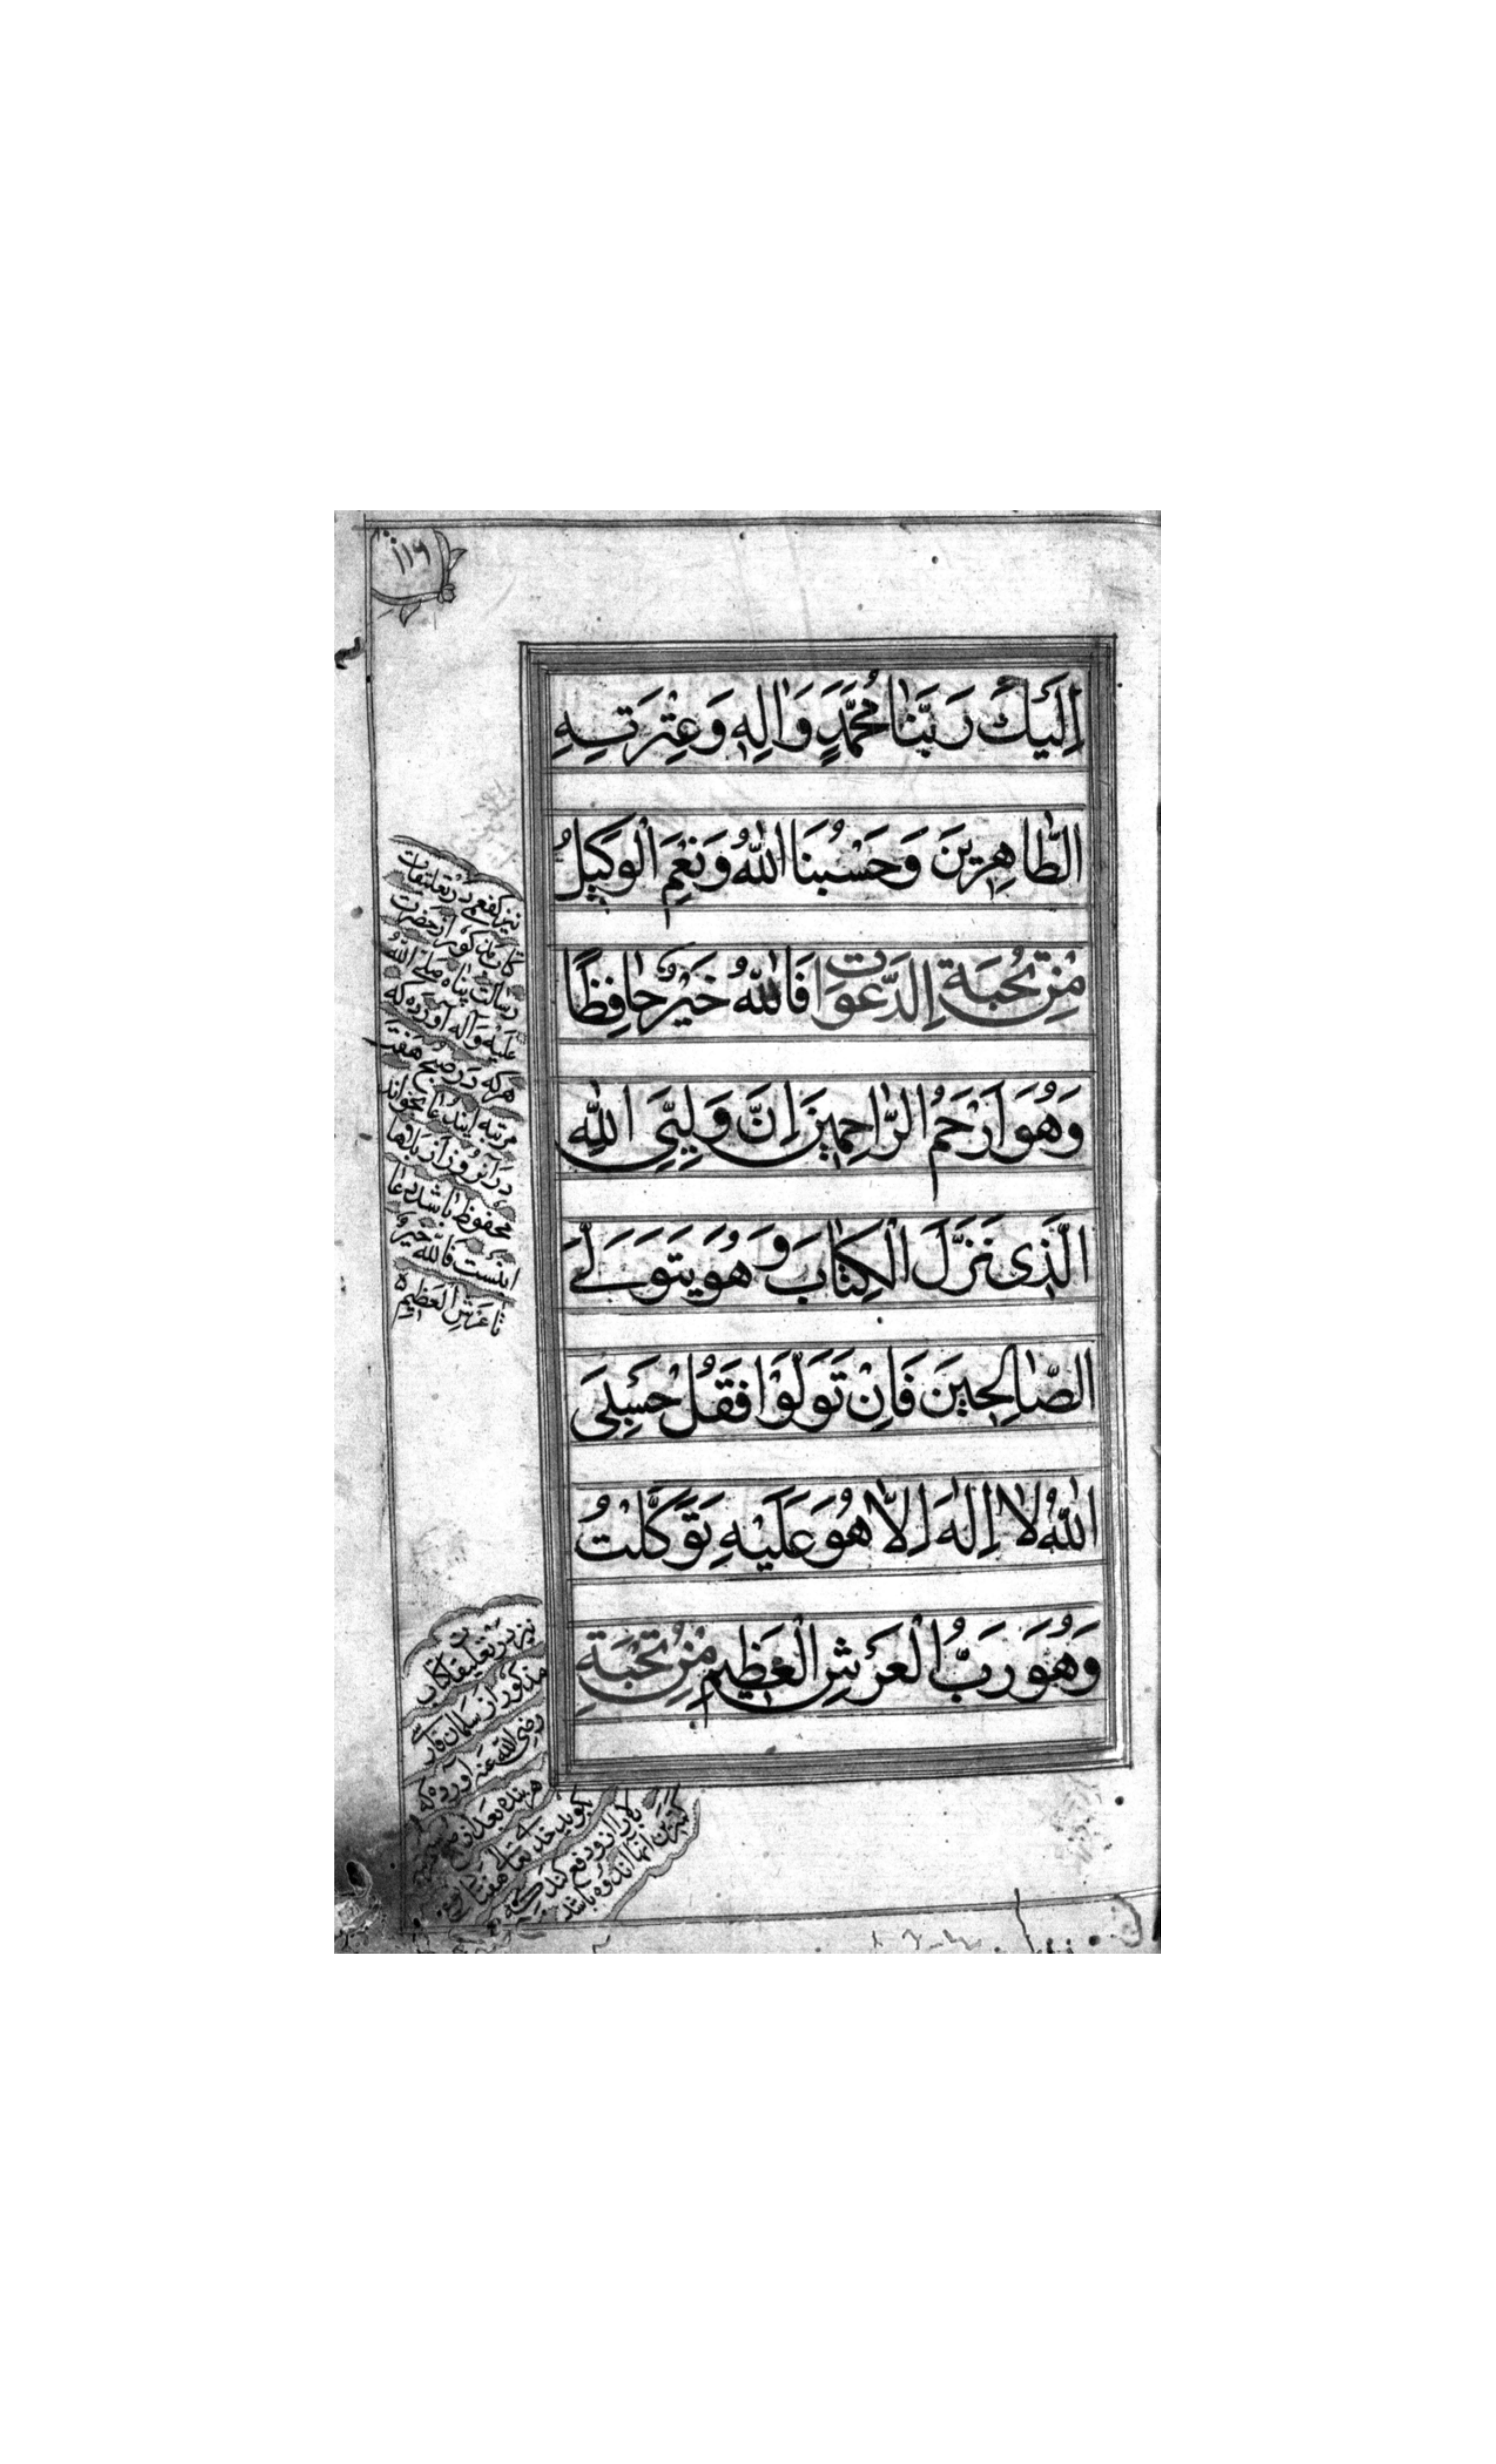 ١١٦
اِلَيْكَ رَبَّنَا مُحَمَّدٍ وَاٰلِهِ وَعِتْرَتِهِ
الطَّاهِرِينَ وَحَسْبُنَا اللّٰهُ وَنِعْمَ الْوَكِيلُ
مِنْ نُخْبَةِ الدَّعَوَاتِ فَاللّٰهُ خَيْرٌ حَافِظًا
وَهُوَ اَرْحَمُ الرَّاحِمِينَ اِنَّ وَلِيِّيَ اللّٰهُ
الَّذِى نَزَّلَ الْكِتَابَ وَهُوَ يَتَوَلَّى
الصَّالِحِينَ فَاِنْ تَوَلَّوْا فَقُلْ حَسْبِيَ
اللّٰهُ لَا اِلٰهَ اِلَّا هُوَ عَلَيْهِ تَوَكَّلْتُ
وَهُوَ رَبُّ الْعَرْشِ الْعَظِيمِ مِنْ نُخْبَةِ
نیز کفعمی در تعلیقات
کتاب مذکور از حضرت
رسالت پناه صلی الله
علیه و آله آورده که
هر که در صبح هفت
مرتبه ایندعا بخواند
در آنروز از بلاها
محفوظ باشد دعا
اینست فالله خیرٌ
تا عرش العظیم
نیز در تعلیقات کتاب
مذکور از سلمان فارسی
رضی الله عنه آورده که
هر بنده بعد از
بگوید خدای تعالی هفتاد
بلا را از او دفع کند که
کمترین آنها اندوه باشد